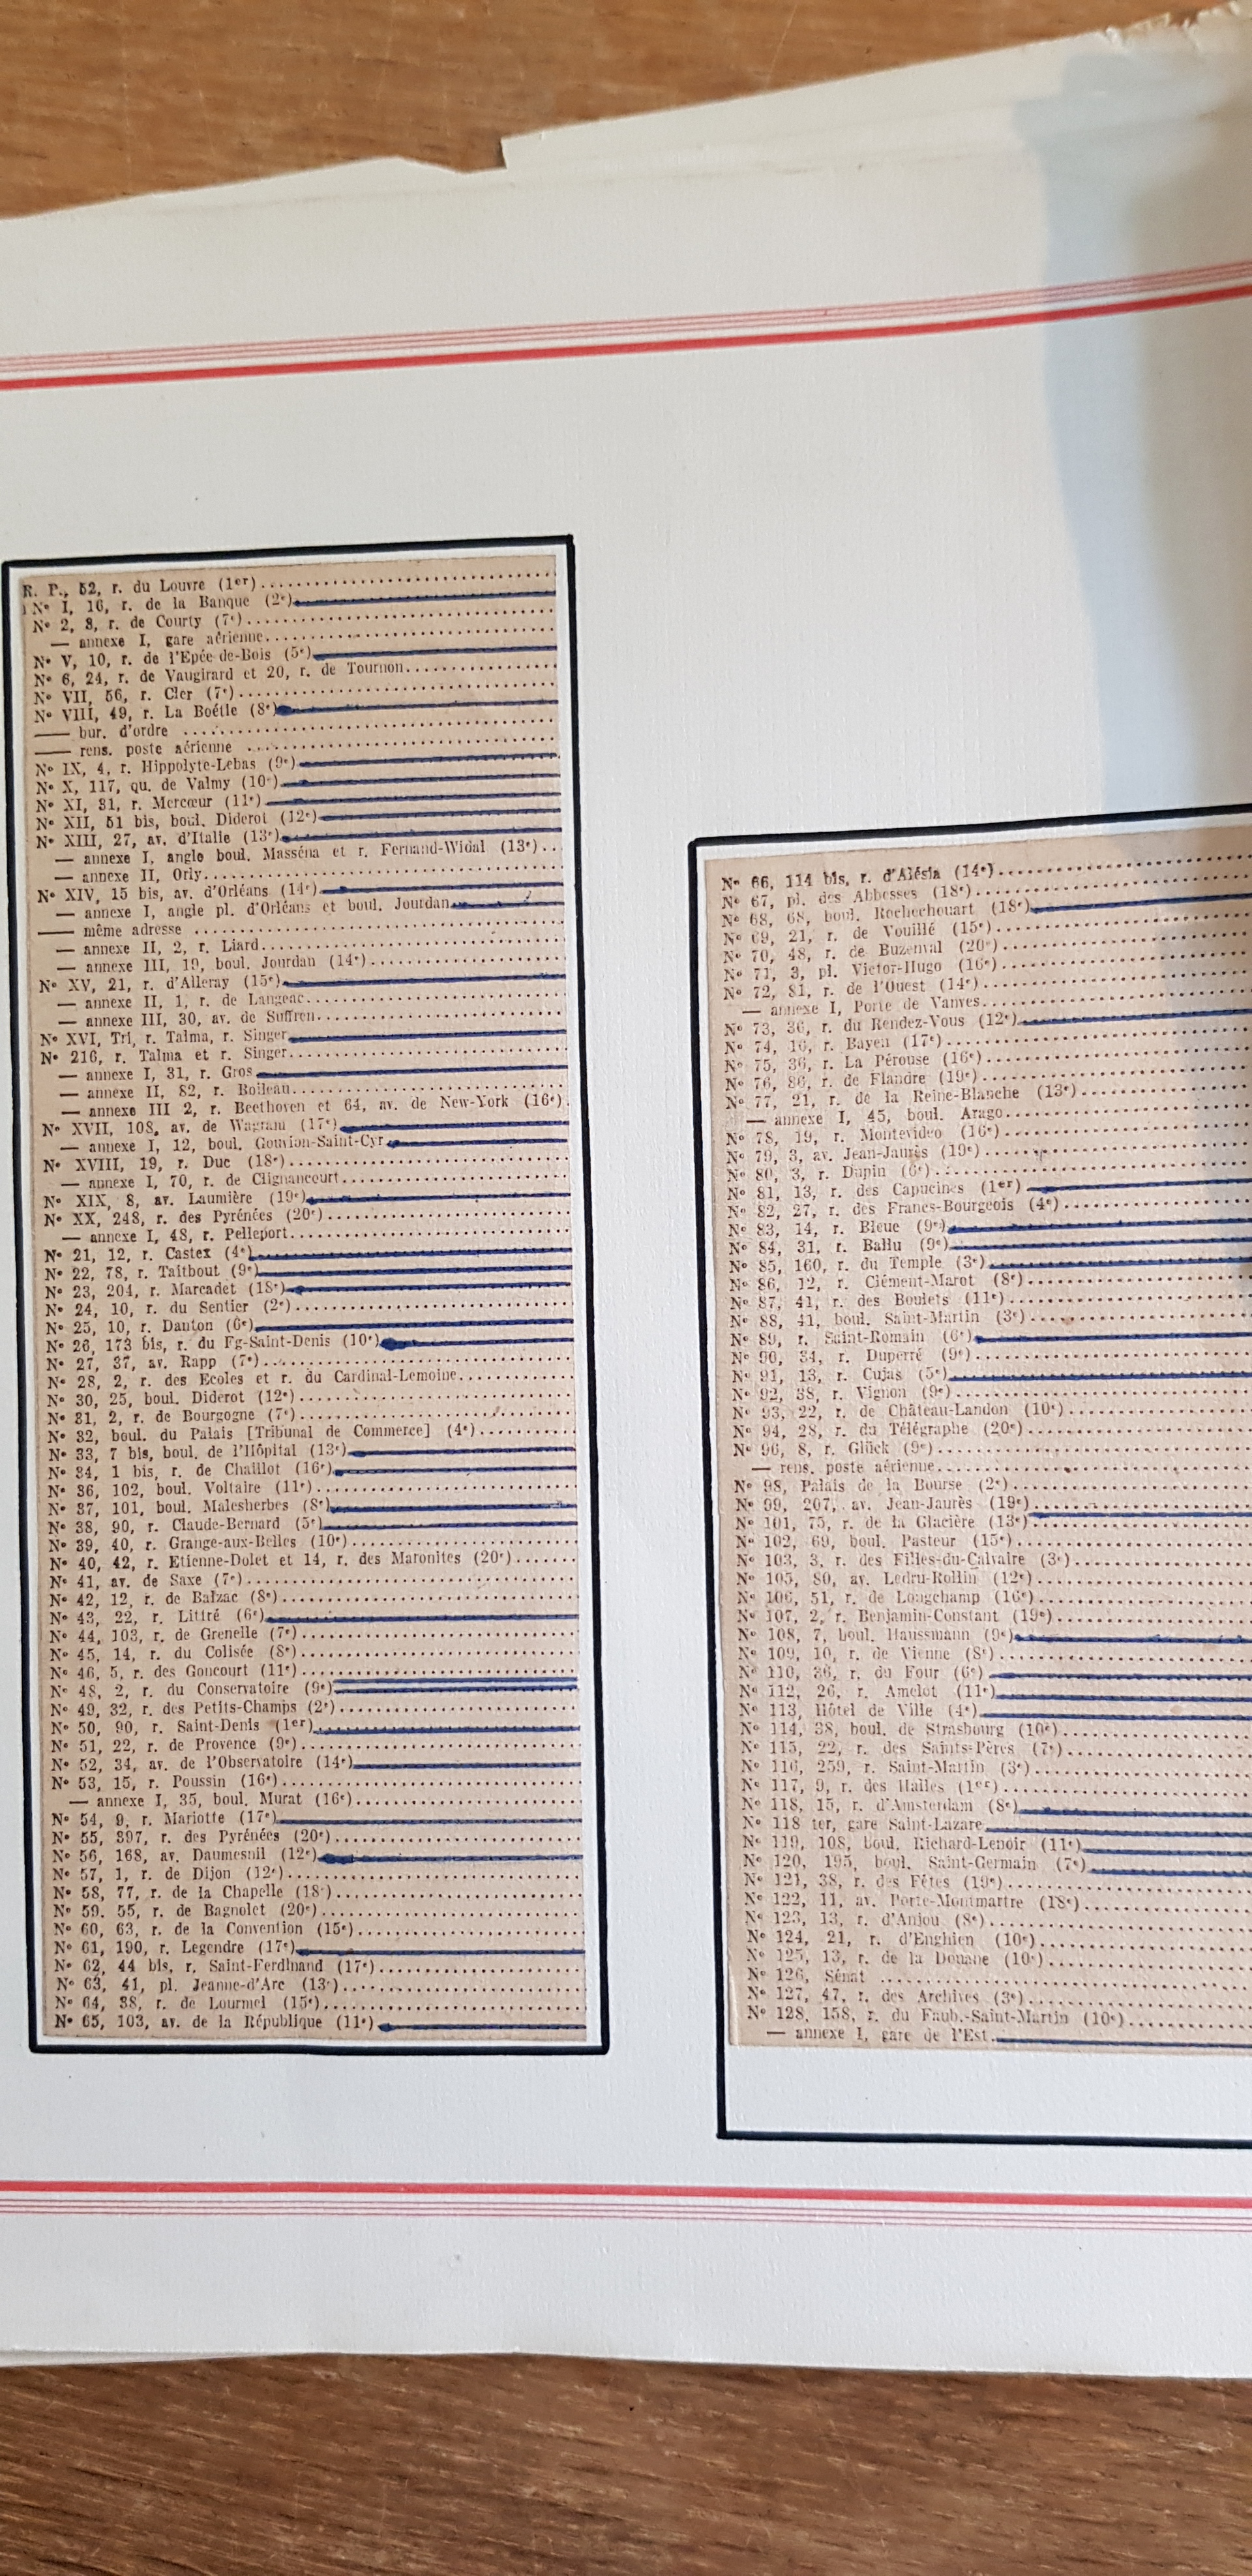 R. P., 52, r. du Louvre (1er)
N° I, 16, r. de la Banque (2e)
N° 2, 8, r. de Courty (7e)
— annexe I, gare aérienne
N° V, 10, r. de l'Epée-de-Bois (5e)
N° 6, 24, r. de Vaugirard et 20, r. de Tournon
N° VII, 56, r. Cler (7e)
N° VIII, 49, r. La Boétie (8e)
— bur. d'ordre
— rens. poste aérienne
N° IX, 4, r. Hippolyte-Lebas (9e)
N° X, 117, qu. de Valmy (10e)
N° XI, 31, r. Mercœur (11e)
N° XII, 51 bis, boul. Diderot (12e)
N° XIII, 27, av. d'Italie (13e)
— annexe I, angle boul. Masséna et r. Fernand-Widal (13e)
— annexe II, Orly
N° XIV, 15 bis, av. d'Orléans (14e)
— annexe I, angle pl. d'Orléans et boul. Jourdan
— même adresse
— annexe II, 2, r. Liard
— annexe III, 19, boul. Jourdan (14e)
N° XV, 21, r. d'Alleray (15e)
— annexe II, 1, r. de Langeac
— annexe III, 30, av. de Suffren
N° XVI, Tri, r. Talma, r. Singer
N° 216, r. Talma et r. Singer
— annexe I, 31, r. Gros
— annexe II, 82, r. Boileau
— annexe III 2, r. Beethoven et 64, av. de New-York (16e)
N° XVII, 108, av. de Wagram (17e)
— annexe I, 12, boul. Gouvion-Saint-Cyr
N° XVIII, 19, r. Duc (18e)
— annexe I, 70, r. de Clignancourt
N° XIX, 8, av. Laumière (19e)
N° XX, 248, r. des Pyrénées (20e)
— annexe I, 48, r. Pelleport
N° 21, 12, r. Castex (4e)
N° 22, 78, r. Taitbout (9e)
N° 23, 204, r. Marcadet (18e)
N° 24, 10, r. du Sentier (2e)
N° 25, 10, r. Danton (6e)
N° 26, 173 bis, r. du Fg-Saint-Denis (10e)
N° 27, 37, av. Rapp (7e)
N° 28, 2, r. des Ecoles et r. du Cardinal-Lemoine
N° 30, 25, boul. Diderot (12e)
N° 31, 2, r. de Bourgogne (7e)
N° 32, boul. du Palais [Tribunal de Commerce] (4e)
N° 33, 7 bis, boul. de l'Hôpital (13e)
N° 34, 1 bis, r. de Chaillot (16e)
N° 36, 102, boul. Voltaire (11e)
N° 37, 101, boul. Malesherbes (8e)
N° 38, 90, r. Claude-Bernard (5e)
N° 39, 40, r. Grange-aux-Belles (10e)
N° 40, 42, r. Etienne-Dolet et 14, r. des Maronites (20e)
N° 41, av. de Saxe (7e)
N° 42, 12, r. de Balzac (8e)
N° 43, 22, r. Littré (6e)
N° 44, 103, r. de Grenelle (7e)
N° 45, 14, r. du Colisée (8e)
N° 46, 5, r. des Goncourt (11e)
N° 48, 2, r. du Conservatoire (9e)
N° 49, 32, r. des Petits-Champs (2e)
N° 50, 90, r. Saint-Denis (1er)
N° 51, 22, r. de Provence (9e)
N° 52, 34, av. de l'Observatoire (14e)
N° 53, 15, r. Poussin (16e)
— annexe I, 35, boul. Murat (16e)
N° 54, 9, r. Mariotte (17e)
N° 55, 397, r. des Pyrénées (20e)
N° 56, 168, av. Daumesnil (12e)
N° 57, 1, r. de Dijon (12e)
N° 58, 77, r. de la Chapelle (18e)
N° 59, 55, r. de Bagnolet (20e)
N° 60, 63, r. de la Convention (15e)
N° 61, 190, r. Legendre (17e)
N° 62, 44 bis, r. Saint-Ferdinand (17e)
N° 63, 41, pl. Jeanne-d'Arc (13e)
N° 64, 38, r. de Lourmel (15e)
N° 65, 103, av. de la République (11e)
N° 66, 114 bis, r. d'Alésia (14e)
N° 67, pl. des Abbesses (18e)
N° 68, 68, boul. Rochechouart (18e)
N° 69, 21, r. de Vouillé (15e)
N° 70, 48, r. de Buzenval (20e)
N° 71, 3, pl. Victor-Hugo (16e)
N° 72, 81, r. de l'Ouest (14e)
— annexe I, Porte de Vanves
N° 73, 36, r. du Rendez-Vous (12e)
N° 74, 16, r. Bayen (17e)
N° 75, 36, r. La Pérouse (16e)
N° 76, 86, r. de Flandre (19e)
N° 77, 21, r. de la Reine-Blanche (13e)
— annexe I, 45, boul. Arago
N° 78, 19, r. Montevideo (16e)
N° 79, 3, av. Jean-Jaurès (19e)
N° 80, 3, r. Dupin (6e)
N° 81, 13, r. des Capucines (1er)
N° 82, 27, r. des Francs-Bourgeois (4e)
N° 83, 14, r. Bleue (9e)
N° 84, 31, r. Ballu (9e)
N° 85, 160, r. du Temple (3e)
N° 86, 12, r. Clément-Marot (8e)
N° 87, 41, r. des Boulets (11e)
N° 88, 41, boul. Saint-Martin (3e)
N° 89, r. Saint-Romain (6e)
N° 90, 34, r. Duperré (9e)
N° 91, 13, r. Cujas (5e)
N° 92, 38, r. Vignon (9e)
N° 93, 22, r. de Château-Landon (10e)
N° 94, 28, r. du Télégraphe (20e)
N° 96, 8, r. Glück (9e)
— rens. poste aérienne
N° 98, Palais de la Bourse (2e)
N° 99, 207, av. Jean-Jaurès (19e)
N° 101, 75, r. de la Glacière (13e)
N° 102, 69, boul. Pasteur (15e)
N° 103, 3, r. des Filles-du-Calvaire (3e)
N° 105, 80, av. Ledru-Rollin (12e)
N° 106, 51, r. de Longchamp (16e)
N° 107, 2, r. Benjamin-Constant (19e)
N° 108, 7, boul. Haussmann (9e)
N° 109, 10, r. de Vienne (8e)
N° 110, 36, r. du Four (6e)
N° 112, 26, r. Amelot (11e)
N° 113, Hôtel de Ville (4e)
N° 114, 38, boul. de Strasbourg (10e)
N° 115, 22, r. des Saints-Pères (7e)
N° 116, 259, r. Saint-Martin (3e)
N° 117, 9, r. des Halles (1er)
N° 118, 15, r. d'Amsterdam (8e)
N° 118 ter, gare Saint-Lazare
N° 119, 108, boul. Richard-Lenoir (11e)
N° 120, 195, boul. Saint-Germain (7e)
N° 121, 38, r. des Fêtes (19e)
N° 122, 11, av. Porte-Montmartre (18e)
N° 123, 13, r. d'Anjou (8e)
N° 124, 21, r. d'Enghien (10e)
N° 125, 13, r. de la Douane (10e)
N° 126, Sénat
N° 127, 47, r. des Archives (3e)
N° 128, 158, r. du Faub.-Saint-Martin (10e)
— annexe I, gare de l'Est